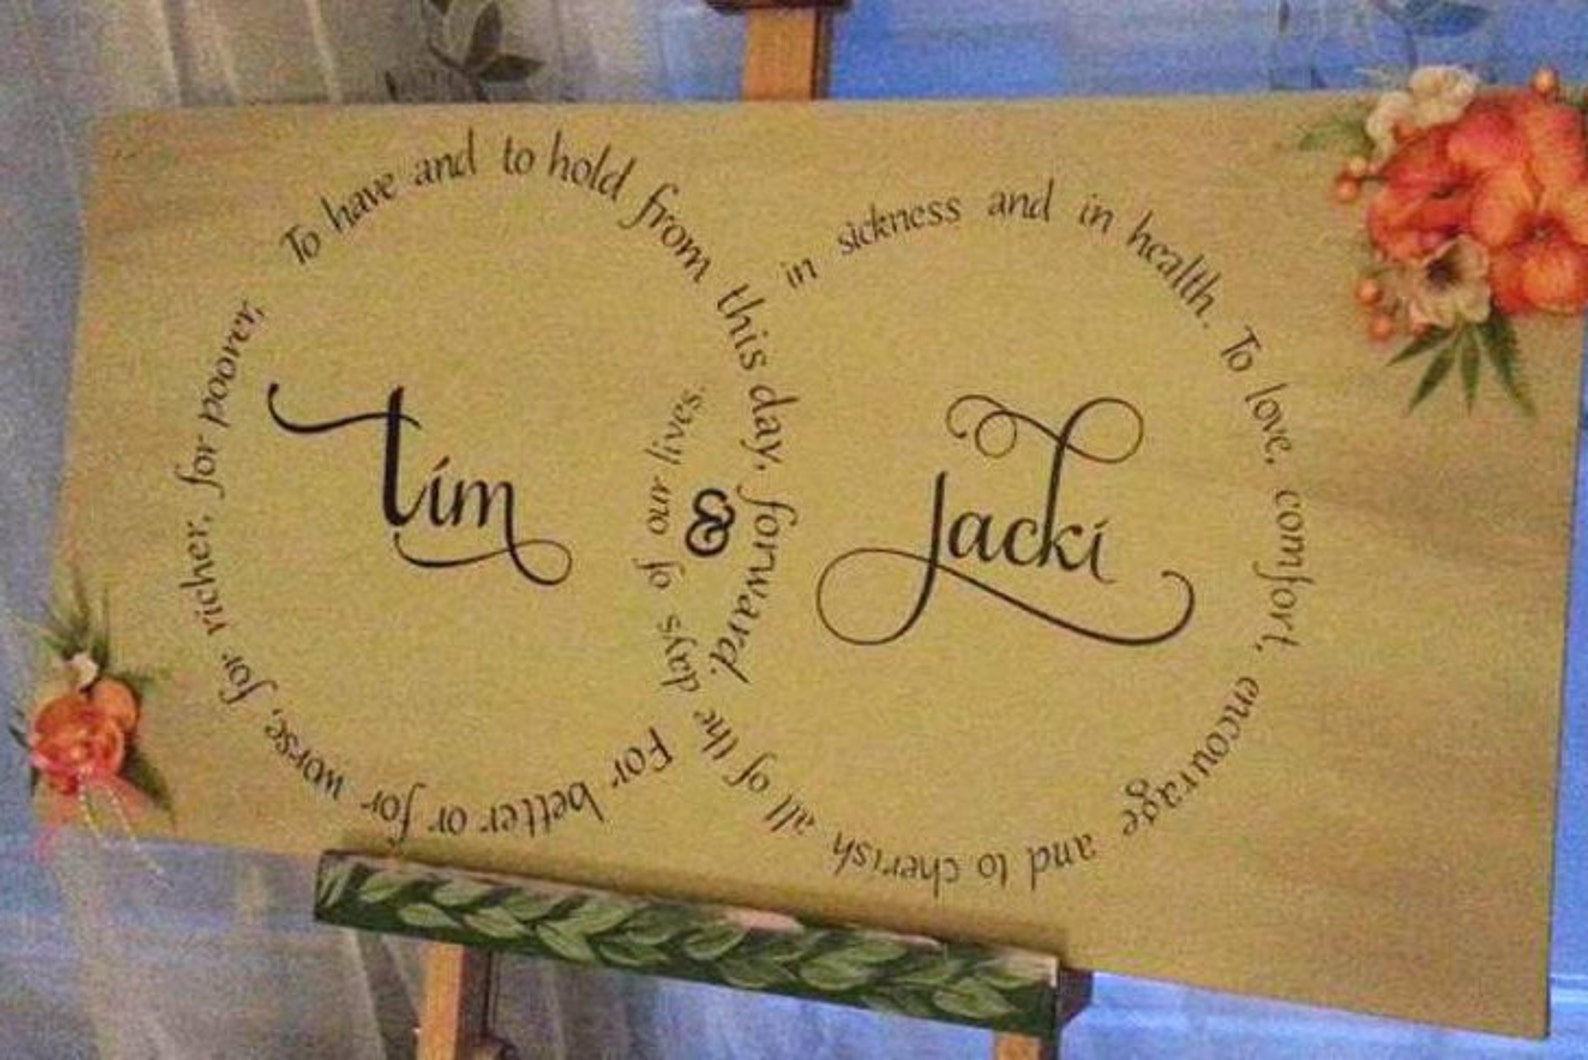 To have and to hold from this day, forward. For better or for worse, for richer, for poorer,
in sickness and in health. To love, comfort, encourage and to cherish all of the days of our lives.
tim
&
jacki